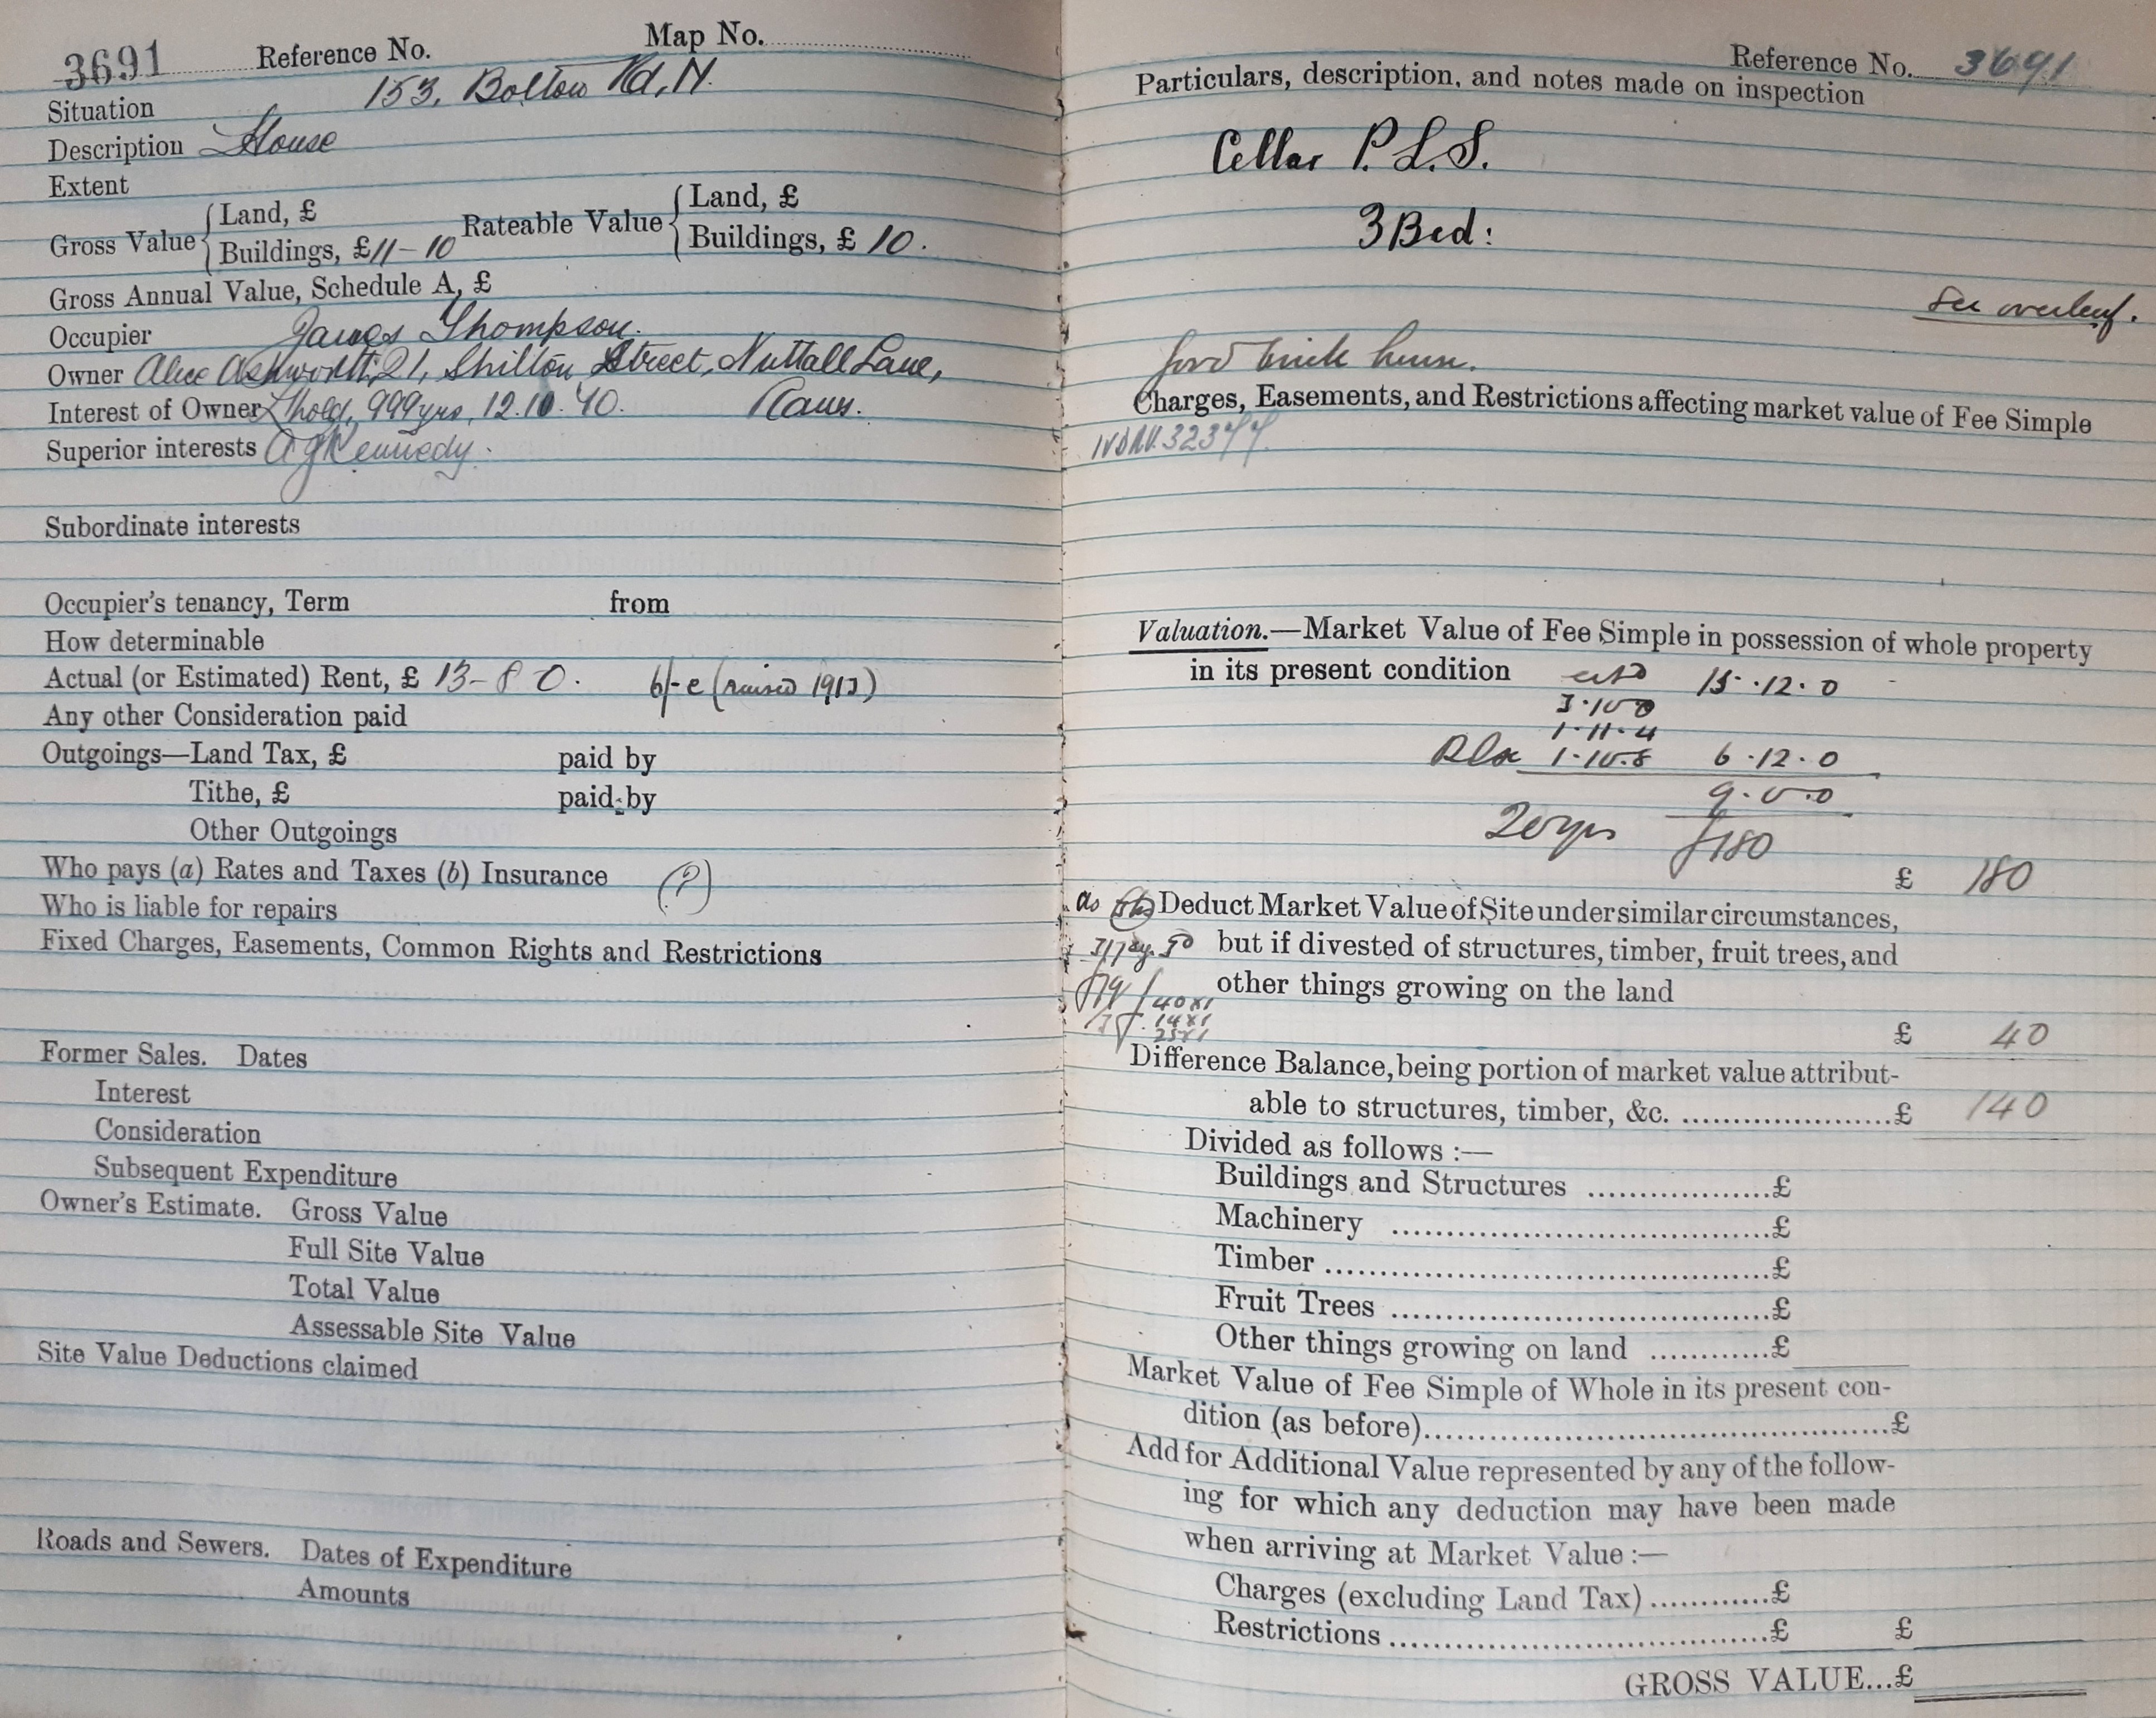 3691 Reference No. Map No.
Situation 153, Bolton Rd, N.
Description House
Extent
Gross Value { Land, £ Rateable Value { Land, £
Buildings, £11-10 Buildings, £ 10.
Gross Annual Value, Schedule A, £
Occupier James Thompson.
Owner Alice Ashworth, 21, Shilton Street, Nuttall Lane,
Interest of Owner L'hold, 999 yrs, 12.10.40.
Superior interests A G Kennedy.
Subordinate interests
Occupier's tenancy, Term from
How determinable
Actual (or Estimated) Rent, £ 13-8 0. 6/-e (raised 1912)
Any other Consideration paid
Outgoings—Land Tax, £ paid by
Tithe, £ paid by
Other Outgoings
Who pays (a) Rates and Taxes (b) Insurance (?)
Who is liable for repairs
Fixed Charges, Easements, Common Rights and Restrictions
Former Sales. Dates
Interest
Consideration
Subsequent Expenditure
Owner's Estimate. Gross Value
Full Site Value
Total Value
Assessable Site Value
Site Value Deductions claimed
Roads and Sewers. Dates of Expenditure
Amounts
Reference No. 3691
Particulars, description, and notes made on inspection
Cellar P.L.S.
3 Bed:
See overleaf.
Good brick house.
Charges, Easements, and Restrictions affecting market value of Fee Simple
Valuation.—Market Value of Fee Simple in possession of whole property
in its present condition 15.12.0
1.11.4
6.12.0
9.0.0
20 yrs £180
£ 180
Deduct Market Value of Site under similar circumstances,
but if divested of structures, timber, fruit trees, and
other things growing on the land
40x1
14x1
25x1
£ 40
Difference Balance, being portion of market value attribut-
able to structures, timber, &c. ....................£ 140
Divided as follows :—
Buildings and Structures ...................£
Machinery ......................................£
Timber .............................................£
Fruit Trees ......................................£
Other things growing on land ............£
Market Value of Fee Simple of Whole in its present con-
dition (as before)................................................£
Add for Additional Value represented by any of the follow-
ing for which any deduction may have been made
when arriving at Market Value :—
Charges (excluding Land Tax) ............£
Restrictions ......................................£ £
GROSS VALUE...£